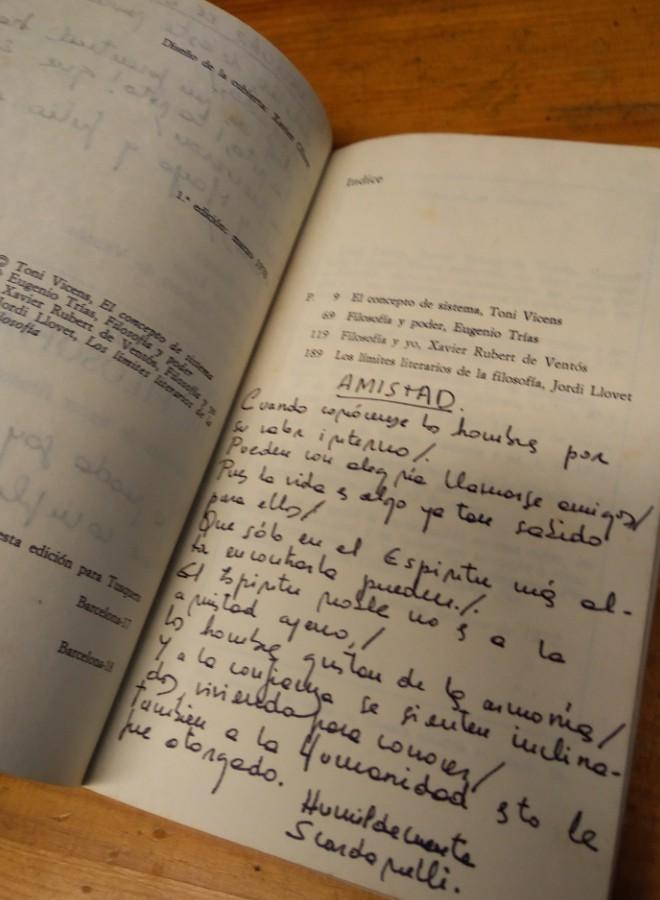 Diseño de la cubierta: Xavier Olivé
1.ª edición: marzo 1978
© Toni Vicens, El concepto de sistema
Eugenio Trías, Filosofía y poder
Xavier Rubert de Ventós, Filosofía y yo
Jordi Llovet, Los límites literarios de la
filosofía
esta edición para Tusquets
Barcelona-17
Barcelona-18
Indice
P. 9 El concepto de sistema, Toni Vicens
69 Filosofía y poder, Eugenio Trías
119 Filosofía y yo, Xavier Rubert de Ventós
189 Los límites literarios de la filosofía, Jordi Llovet
AMISTAD.
Cuando conócense los hombres por
su valor interno/.
Pueden con alegría llamarse amigos/
Pues la vida es algo ya tan sabido
para ellos/
Que sólo en el Espíritu más al-
ta encontrarla pueden./.
El Espíritu noble no es a la
amistad ajeno,/
los hombres gustan de las armonías/
Y a la confianza se sienten inclina-
dos, viviendo para conocer/
También a la Humanidad esto le
fue otorgado.
Humildemente
Scardanelli.